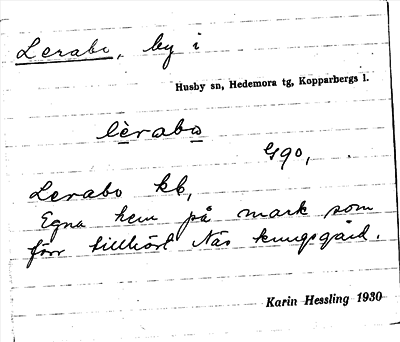 Lerabo, by i
Husby sn, Hedemora tg, Kopparbergs l.
lèrabo
G90,
Lerabo kb,
Egna hem på mark som
förr tillhört Näs kungsgård.
Karin Hessling 1930